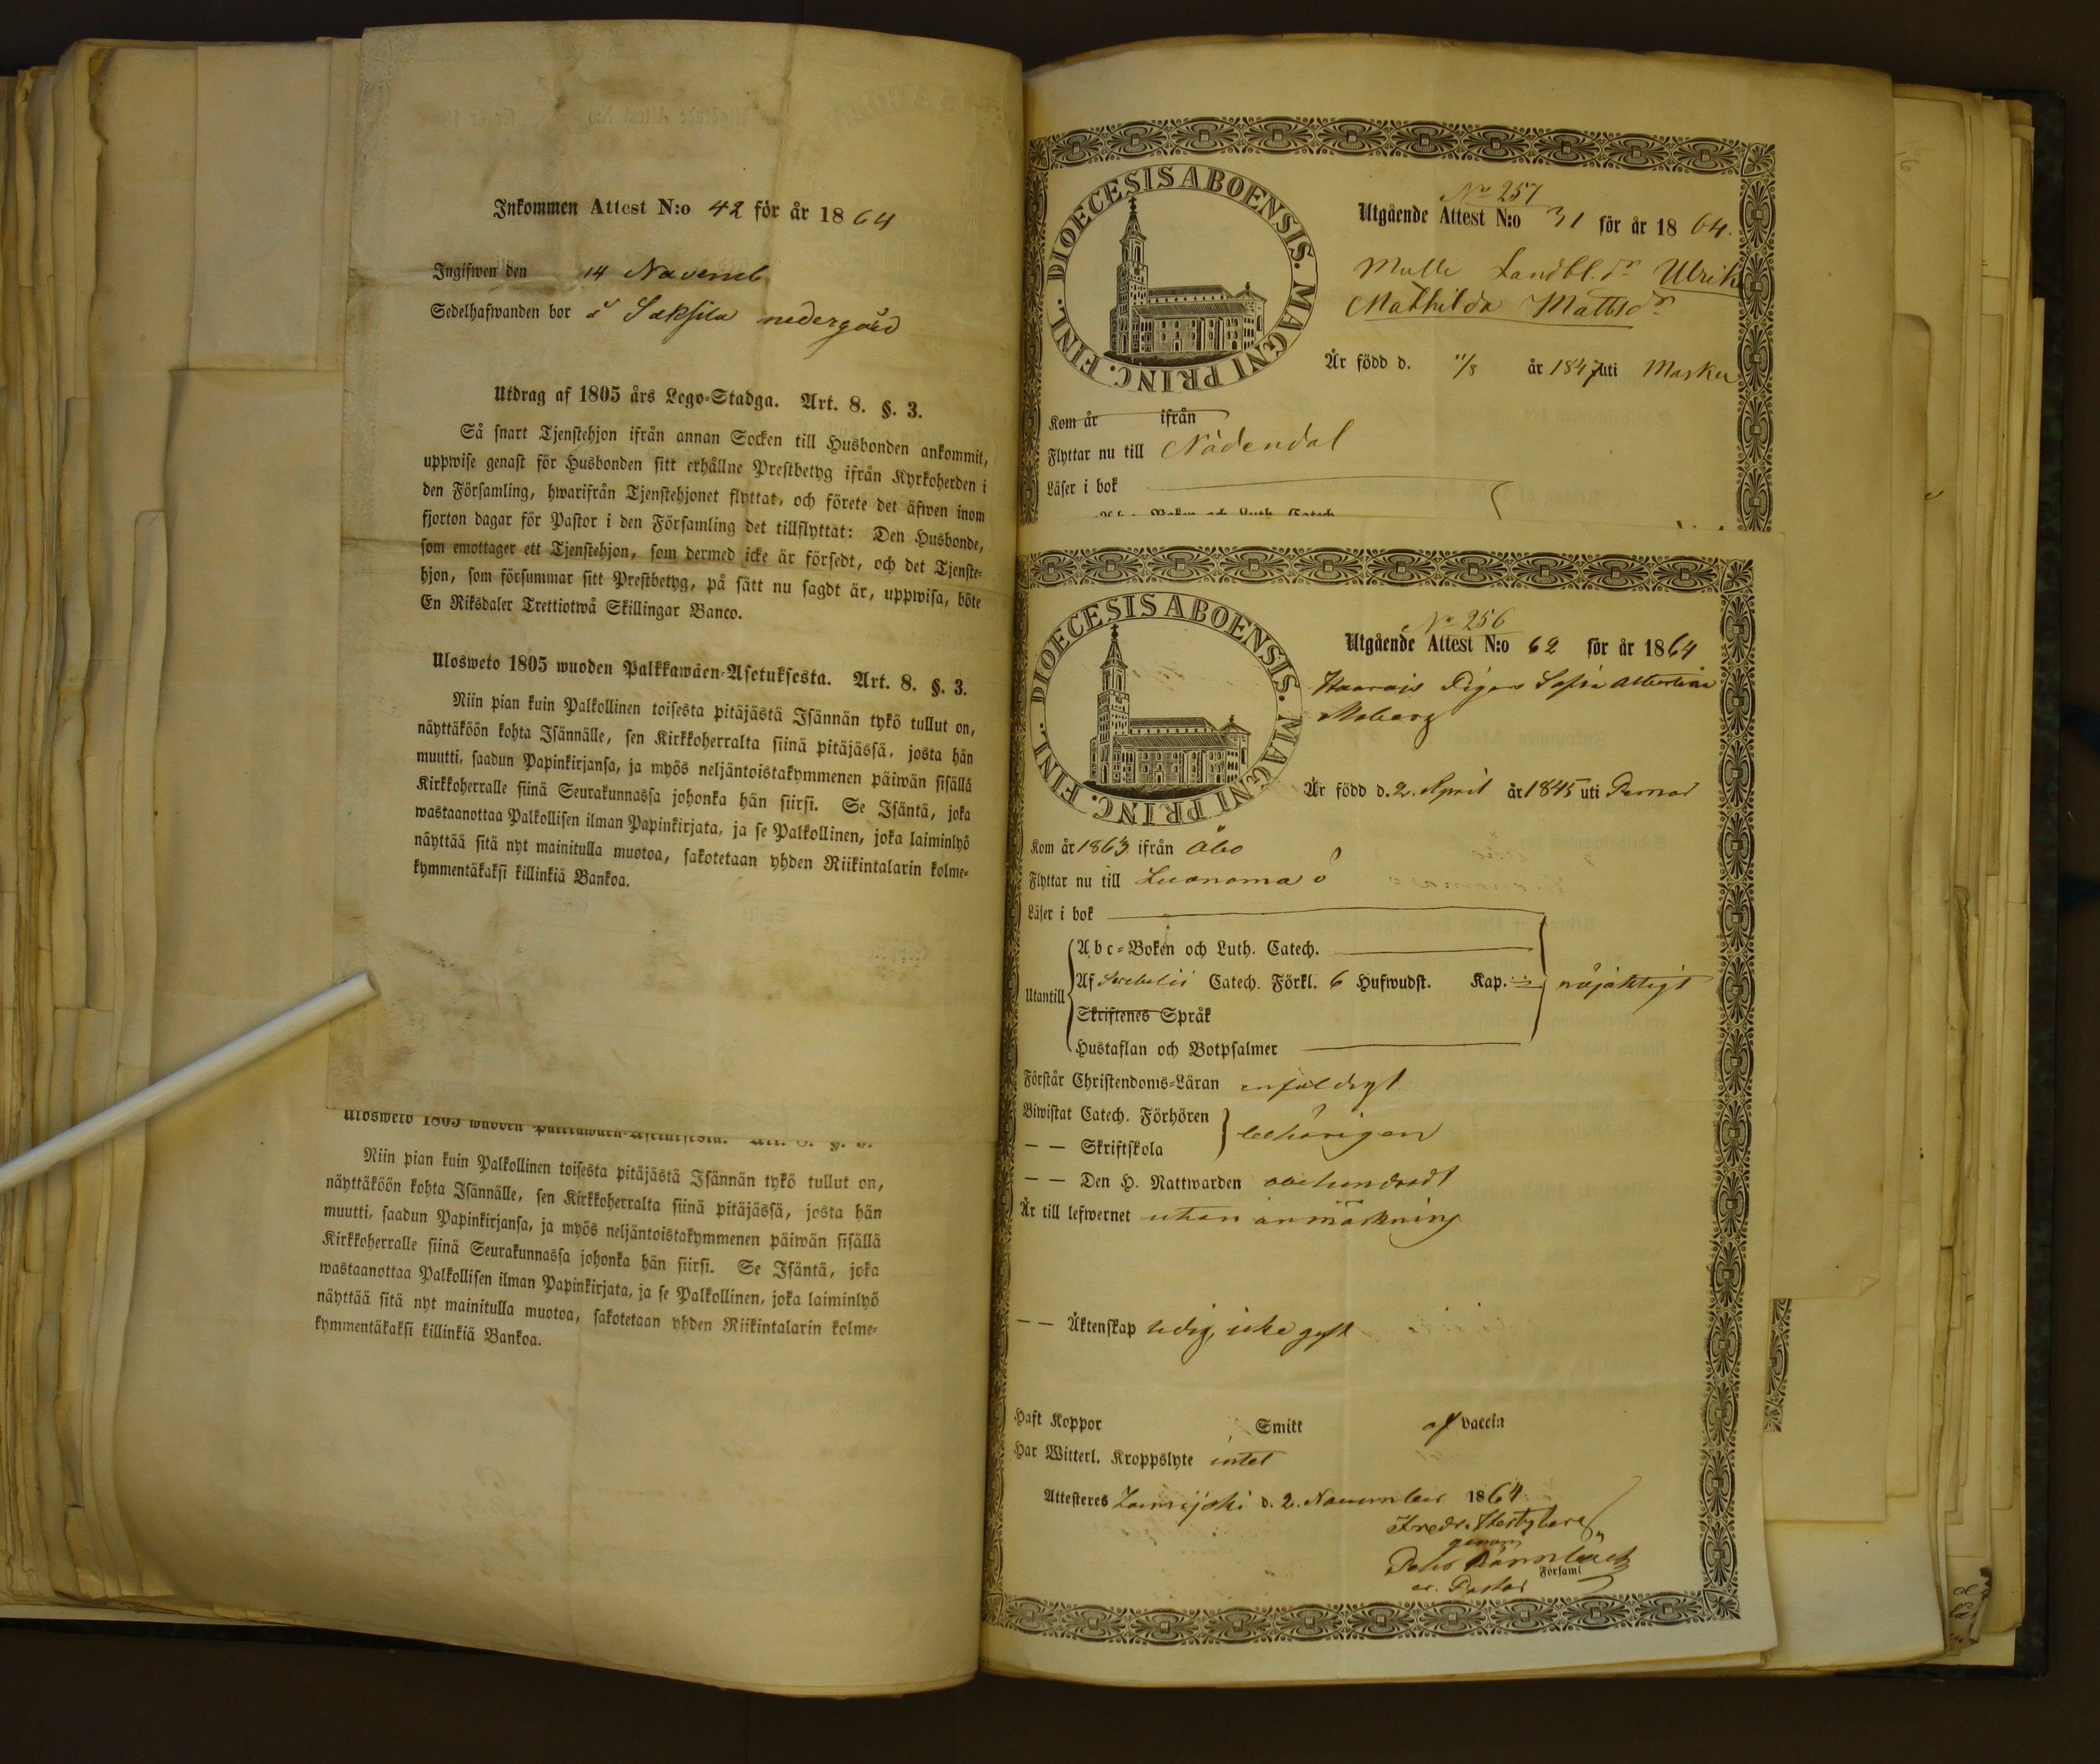 Inkommen Attest N:o 42 för år 1864
Ingifwen den 14 Novemb
Sedelhafwanden bor å Saksila nedergård
Utdrag af 1805 års Lego-Stadga. Art. 8. §. 3.
Så snart Tjenstehjon ifrån annan Socken till Husbonden ankommit,
uppwise genast för Husbonden sitt erhållne Prestbetyg ifrån Kyrkoherden i
den Församling, hwarifrån Tjenstehjonet flyttat, och förete det äfwen inom
fjorton dagar för Pastor i den Församling det tillflyttat: Den Husbonde,
som emottager ett Tjenstehjon, som dermed icke är försedt, och det Tjenste-
hjon, som försummar sitt Prestbetyg, på sätt nu sagdt är, uppwisa, böte
En Riksdaler Trettiotwå Skillingar Banco.
Ulosweto 1805 wuoden Palkkawäen-Asetuksesta. Art. 8. §. 3.
Niin pian kuin Palkollinen toisesta pitäjästä Isännän tykö tullut on,
näyttäköön kohta Isännälle, sen Kirkkoherralta siinä pitäjässä, josta hän
muutti, saadun Papinkirjansa, ja myös neljäntoistakymmenen päiwän sisällä
Kirkkoherralle siinä Seurakunnassa johonka hän siirsi. Se Isäntä, joka
wastaanottaa Palkollisen ilman Papinkirjata, ja se Palkollinen, joka laiminlyö
näyttää sitä nyt mainitulla muotoa, sakotetaan yhden Riikintalarin kolme-
kymmentäkaksi killinkiä Bankoa.
Ulosweto 1805 wuoden Palkkawäen-Asetuksesta. Art. 8. §. 3.
Niin pian kuin Palkollinen toisesta pitäjästä Isännän tykö tullut on,
näyttäköön kohta Isännälle, sen Kirkkoherralta siinä pitäjässä, josta hän
muutti, saadun Papinkirjansa, ja myös neljäntoistakymmenen päiwän sisällä
Kirkkoherralle siinä Seurakunnassa johonka hän siirsi. Se Isäntä, joka
wastaanottaa Palkollisen ilman Papinkirjata, ja se Palkollinen, joka laiminlyö
näyttää sitä nyt mainitulla muotoa, sakotetaan yhden Riikintalarin kolme-
kymmentäkaksi killinkiä Bankoa.
DIOECESIS ABOENSIS. MAGNI PRINC. FINL.
No 257
Utgående Attest N:o 31 för år 1864.
Mulli Landb. dr Ulrika
Mathilda Mattsdr
Är född d. 11/8 år 1847 uti Masku
Kom år ifrån
Flyttar nu till Nådendal
Läser i bok
Abc-Boken och Luth. Catech.
DIOECESIS ABOENSIS. MAGNI PRINC. FINL.
No 256
Utgående Attest N:o 62 för år 1864
Pigan Sofia Albertina
Moberg
Är född d. 2. April år 1845 uti Pemar
Kom år 1863 ifrån Åbo
Flyttar nu till Luonomaa
Läser i bok
Utantill
Abc-Boken och Luth. Catech.
Af Svebelii Catech. Förkl. 6 Hufwudst. Kap. nöjaktigt
Skriftenes Språk
Hustaflan och Botpsalmer
Förstår Christendoms-Läran enfaldigt
Biwistat Catech. Förhören
— — Skriftskola
behörigen
— — Den H. Nattwarden obehindradt
Är till lefwernet utan anmärkning
— — Äktenskap ledig, icke gift
Haft Koppor Smitt af vaccin
Har Witterl. Kroppslyte intet
Attesteras d. 2. November 1864
Fredr.
genom
Församl
Pastor